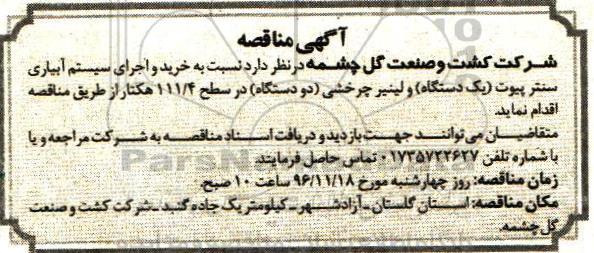 آگهی مناقصه
شرکت کشت و صنعت گل چشمه در نظر دارد نسبت به خرید و اجرای سیستم آبیاری
سنتر پیوت (یک دستگاه) و لینیر چرخشی (دو دستگاه) در سطح ۱۱۱/۴ هکتار از طریق مناقصه
اقدام نماید.
متقاضیان می توانند جهت بازدید و دریافت اسناد مناقصه به شرکت مراجعه و یا
با شماره تلفن ۰۱۷۳۵۷۲۳۶۲۷ تماس حاصل فرمایند.
زمان مناقصه: روز چهارشنبه مورخ ۹۶/۱۱/۱۸ ساعت ۱۰ صبح.
مکان مناقصه: استان گلستان - آزادشهر - کیلومتر یک جاده گنبد - شرکت کشت و صنعت
گل چشمه.